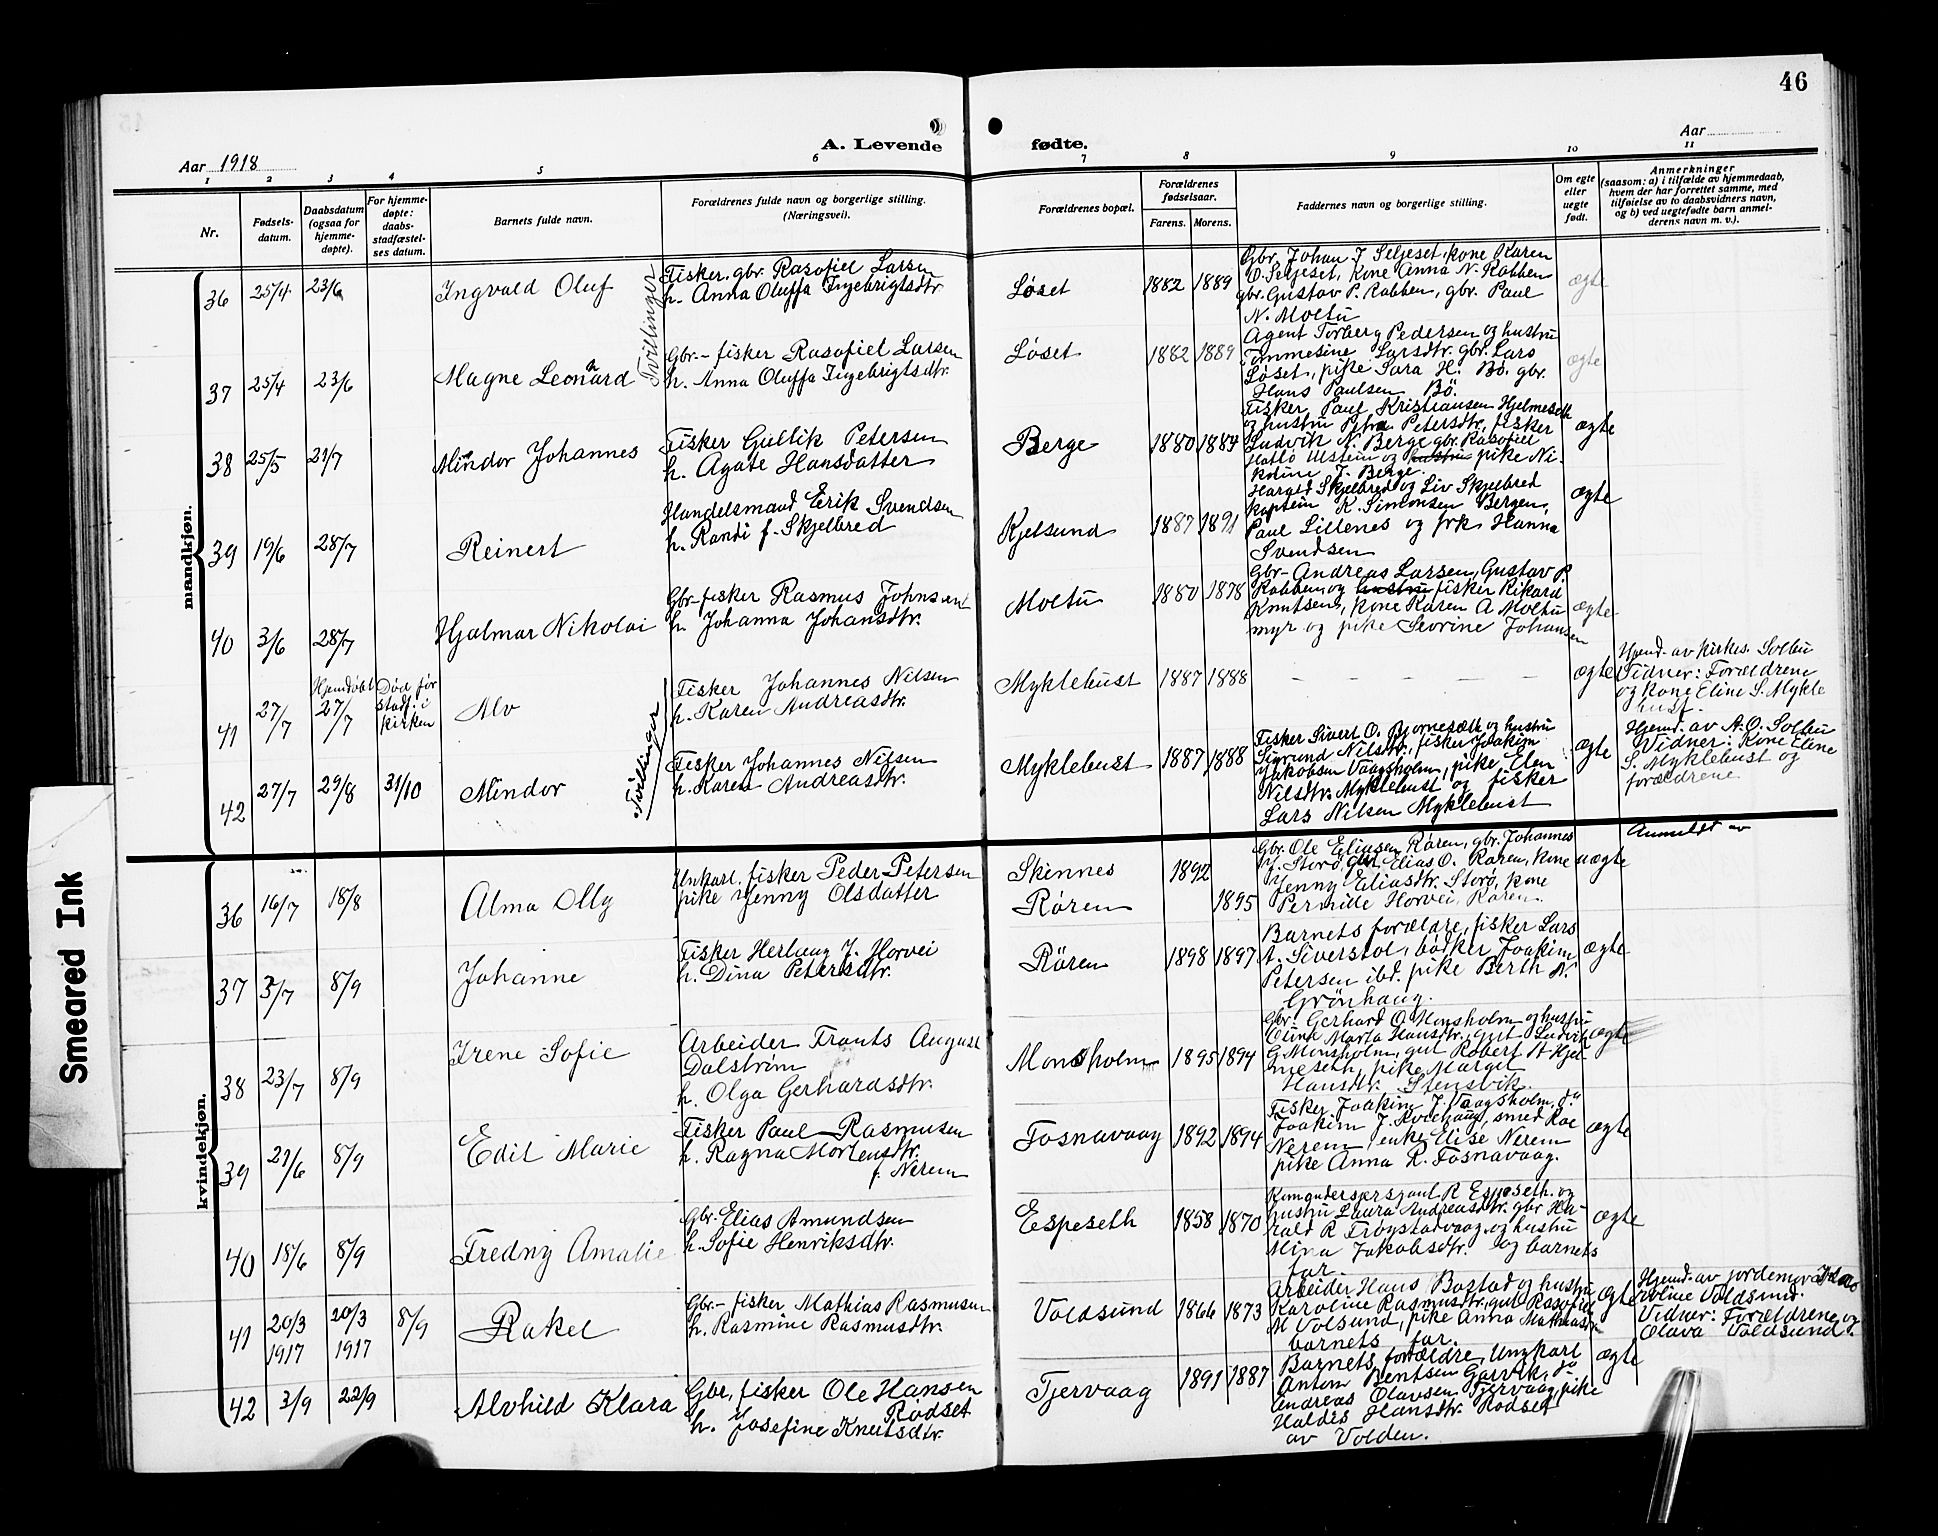 46
A. Levende fødte.
Aar 1918
Aar
1 2 3 4 5 6 7 8 9 10 11
Nr.
Fødsels-
datum.
Daabsdatum
(ogsaa for
hjemme-
døpte).
For hjemme-
døpte:
daabs-
stadfæstel-
ses datum.
Barnets fulde navn.
Forældrenes fulde navn og borgerlige stilling.
(Næringsvei).
Forældrenes bopæl.
Forældrenes
fødselsaar.
Farens. Morens.
Faddernes navn og borgerlige stilling.
Om egte
eller
uegte
født.
Anmerkninger
(saasom: a) i tilfælde av hjemmedaab,
hvem der har forrettet samme, med
tilføielse av to daabsvidners navn,
og b) ved uegtefødte barn anmel-
derens navn m. v.).
mandkjøn.
36 25/4 23/6 Ingvald Oluf
Tvillinger
Fisker, gbr. Rasofiel Larsen
h. Anna Oluffa Ingebrigtsdtr.
Løset 1882 1889
Gbr. Johan J Seljeset, kone Karen
O. Seljeset, kone Anna N. Rabben
gbr. Gustav P. Rabben, gbr. Paul
N. Moltu
ægte
37 25/4 23/6 Magne Leonard
Gbr.- fisker Rasofiel Larsen
h. Anna Oluffa Ingebrigtsdtr.
Løset 1882 1889
Agent Torberg Pedersen og hustru
Larsdtr. gbr. Lars
Løset, pike Sara H. Bö. gbr.
Hans Paulsen Bö.
ægte
38 25/5 21/7 Mindor Johannes
Fisker Gullik Petersen
h. Agate Hansdatter
Berge 1880 1884
Fisker Paul Kristiansen Hjelmeseth
og hustru Petra Petersdtr, fisker
Ludvik N. Berge gbr. Rasofiel
Hatlö Ulstein og hustru pike Ni-
koline J. Berge.
ægte
39 19/6 28/7 Reinert
Handelsmand Erik Svendsen
h. Randi f. Skjelbred
Kjelsund 1887 1891
Harald Skjelbred og Liv Skjelbred
kaptein K. Simonsen Bergen,
Paul Lillenes og frk Hanna
Svendsen
ægte
40 3/6 28/7 Hjalmar Nikolai
Gbr-fisker Rasmus Johnsen
h. Johanna Johansdtr.
Moltu 1880 1878
Gbr- Andreas Larsen, Gustav P.
Rabben og hustru fisker Rikard
Knutsen, kone Karen A Moltu
myr og pike Severine Johansen
ægte
41 27/7 Hjemdöbt 27/7
Död før
stadf. i
kirken
Alv
Tvillinger
Fisker Johannes Nilsen
h. Karen Andreasdtr.
Myklebust 1887 1888
- - - - -
ægte
Hjemd. av kirkes. Solbu
Vidner: Forældrene
og kone Eline S. Mykle
bust.
42 27/7 29/8 31/10 Mindor
Fisker Johannes Nilsen
h. Karen Andreasdtr.
Myklebust 1887 1888
Fisker Sivert O. Bjørnesæth og hustru
Sigrund Nilsdtr., fisker Joakim
Jakobsen Vaagsholm, pike Elen
Nilsdtr. Myklebust og fisker
Lars Nilsen Myklebust
ægte
Hjemd. av A. O. Solbu
Vidner: Kone Eline
S. Myklebust og
forældrene
kvindekjøn.
36 16/7 18/8 Alma Olly
Unkarl, fisker Peder Petersen
pike Jenny Olsdatter
Skinnes 1892
Røren 1895
Gbr. Ole Eliasen Røren, gbr. Johannes
J. Storø, gut Elias O. Røren, kone
Jenny Eliasdtr. Storø, kone
Pernille Horvei, Røren.
uægte
Anmeldt av
37 5/7 8/9 Johanne
Fisker Herlaug J. Horvei
h. Dina Petersdtr.
Røren 1898 1897
Barnets forældre, fisker Lars
A. Siverstol, bödker Joakim
Petersen ibd. pike Berth N.
Grönhaug.
ægte
38 23/7 8/9 Irene Sofie
Arbeider Frants August
Dalstrøm
h. Olga Gerhardsdtr.
Monsholm 1895 1894
Gbr. Gerhard O. Monsholm og hustru
Olina Marta Hansdtr., gut Ludvik
G. Monsholm, gut Robert A. Hjel-
meseth, pike Margit
Hansdtr. Stensvik.
ægte
39 21/6 8/9 Edit Marie
Fisker Paul Rasmusen
h. Ragna Mortensdtr.
f. Nerem
Fosnavaag 1892 1894
Fisker Joakim J. Vaagsholm, do
Joakim J. Kvithaug, smed Roe
Nerem, enke Elise Nerem
pike Anna R. Fosnavaag.
ægte
40 18/6 8/9 Fredny Amalie
Gbr. Elias Amundsen
h. Sofie Henriksdtr.
Espeseth 1858 1870
R. Espeseth. og
hustru Laura Andreasdtr. gbr Ha-
rald R. Frøystadvaag og hustru
Mina Jakobsdtr. og barnets
far.
ægte
41 20/3 1917 20/3 1917 8/9 Rakel
Gbr.- fisker Mathias Rasmusen
h. Rasmine Rasmusdtr.
Voldsund 1866 1873
Arbeider Hans Bastad og hustru
Karoline Rasmusdtr., gut Rasofiel
M Volsund, pike Anna Mathiasdtr
barnets far.
ægte
Hjemd. av jordemor
Voldsund.
Vidner: Forældrene og
Olava Voldsund.
42 3/9 22/9 Alvhild Klara
Gbr, fisker Ole Hansen
Rødset
h. Josefine Knutsdtr.
Tjervaag 1891 1887
Barnets forældre, Ungkarl
Anton Bentsen Garvik, do
Andreas Olavsen Tjervaag, pike
Haldis Hansdtr. Rødset
av Volden.
ægte
Smeared Ink